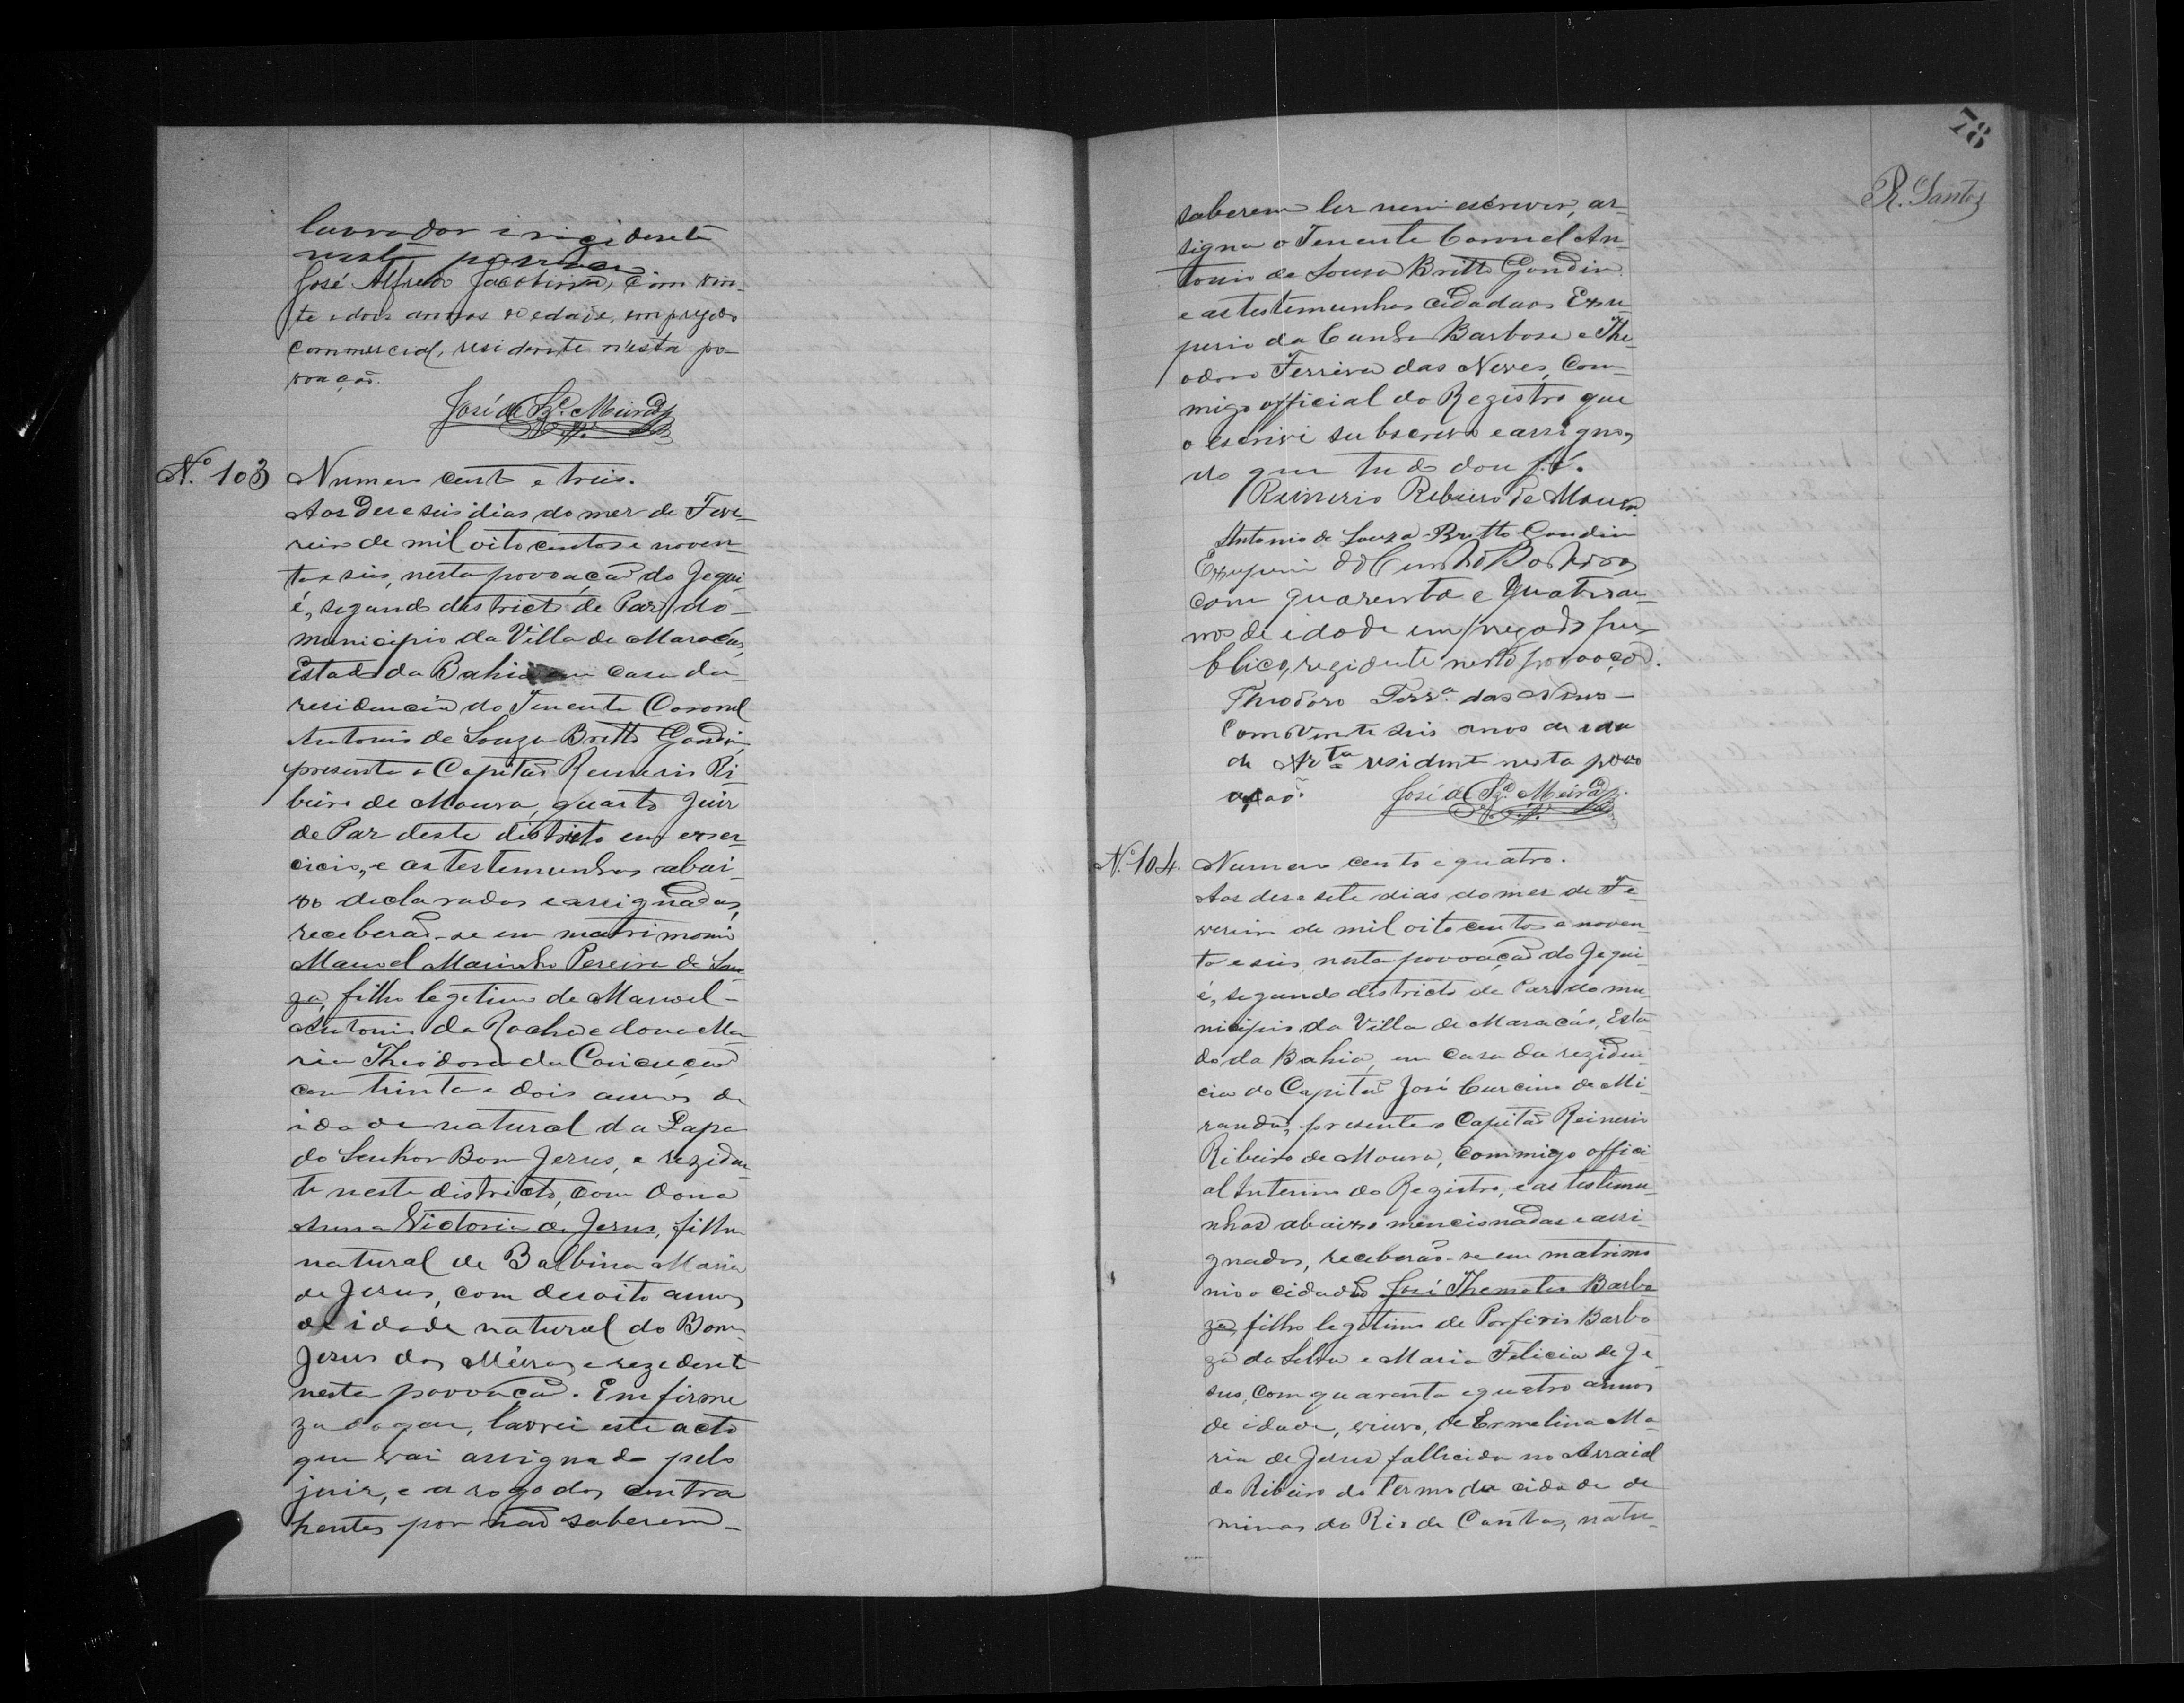 lavrador e rezidente
nesta
José Alfredo Jacobina, com vin-
te e dois annos de edade, empregado
commercial, residente n'esta po-
voação.
José de Sz.ª Meira
N.º 103 Numero cento e treis.
Aos deseseis dias do mez de Feve-
reiro de mil oito centos e noven-
ta e seis, nesta povoação do Jequi-
é, segundo districto de Paz do
municipio da Villa de Maracás,
Estado da Bahia em casa da
residencia do Tenente Coronel
Antonio de Souza Britto Gondin,
presente o Capitão Reinerio Ri-
beiro de Moura, quarto Juiz
de Paz deste districto em exser-
cicio, e as testemunhas abai-
xo declaradas e assignadas,
receberão-se em matrimonio
Manoel Marinho Pereira de Sou-
za, filho legetimo de Manoel
Antonio da Rocha e dona Ma-
ria Theodora da Conceição
com trinta e dois annos de
idade natural da Lapa
do Senhor Bom Jesus, e reziden-
te neste districto, com Dona
Anna Victoria de Jesus, filha
natural de Balbina Maria
de Jesus, com desoito annos
de idade natural do Bom
Jesus dos Meiras e rezedente
nesta povoação. Em firme
za do que, lavrei este acto
que vai assignado pelo
juiz, e a rogo dos contra
hentes por não saberem
78
R. Santos
saberem ler nem escrever, as-
signa o Tenente Coronel An-
tonio de Sousa Britto Gondin
e as testemunhas cidadãos Exu-
perio da Cunha Barbosa e The-
odoro Ferreira das Neves, Com-
migo official do Registro que
o escrivi subscrevo e assigno,
do que tudo dou fé.
Reinerio Ribeiro de Moura
Antonio de Souza Britto Gondin
Exuperio da Cunha Barboza
com quarenta e quatro an-
nos de idade empregado pu-
blico, rezidente nesta povoação.
Theodoro Ferr.ª das Neves
Com Vinte seis anos de ida
de residente nesta povo
ação. José de Sz.ª Meira
N.º 104. Numero cento e quatro.
Aos desesete dias do mez de Fe-
vereiro de mil oito centos e noven-
ta e seis nesta povoação do Jequi-
é, segundo districto de Paz do mu-
nicipio da Villa de Maracás, Esta-
do da Bahia, em casa da reziden-
cia do Capitão José Curcino de Mi-
randa, presente o Capitão Reinerio
Ribeiro de Moura, Commigo offici-
al Interino do Registro, e as testemu-
nhas abaixo mencionadas e assi-
gnadas, receberão-se em matrimo
nio o cidadão José Themoteo Barbo
za, filho legitimo de Porfirio Barbo
za da Silva e Maria Felicia de Je-
sus, com quarenta e quatro annos
de idade, viuvo, de Ermelina Ma-
ria de Jesus fallecida no Arraial
do Ribeiro do termo da cidade de
minas do Rio de Contas, natu-